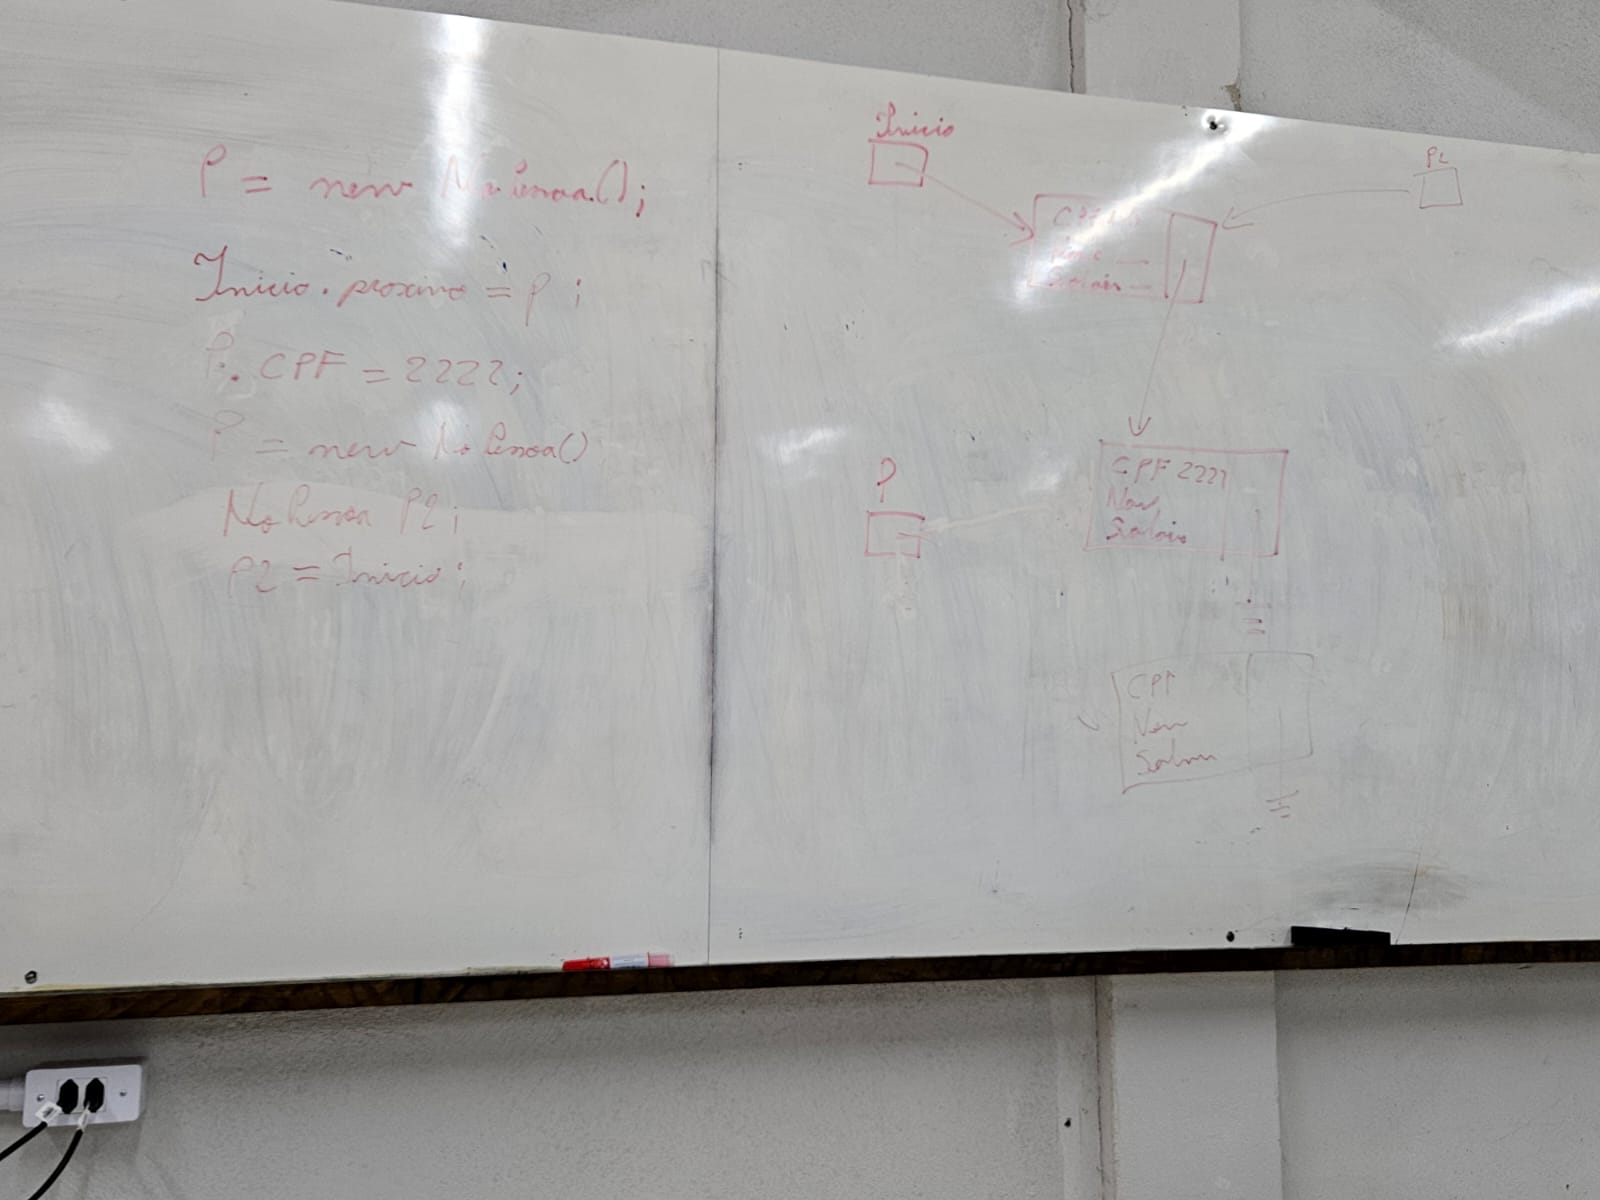 P = new NoPessoa();
Inicio.proximo = p;
P.CPF = 2222;
P = new NoPessoa()
NoPessoa P2;
P2 = Inicio;
Inicio
P2
CPF
Nome
Salário
P
CPF 2222
Nom
Salário
CPF
Nom